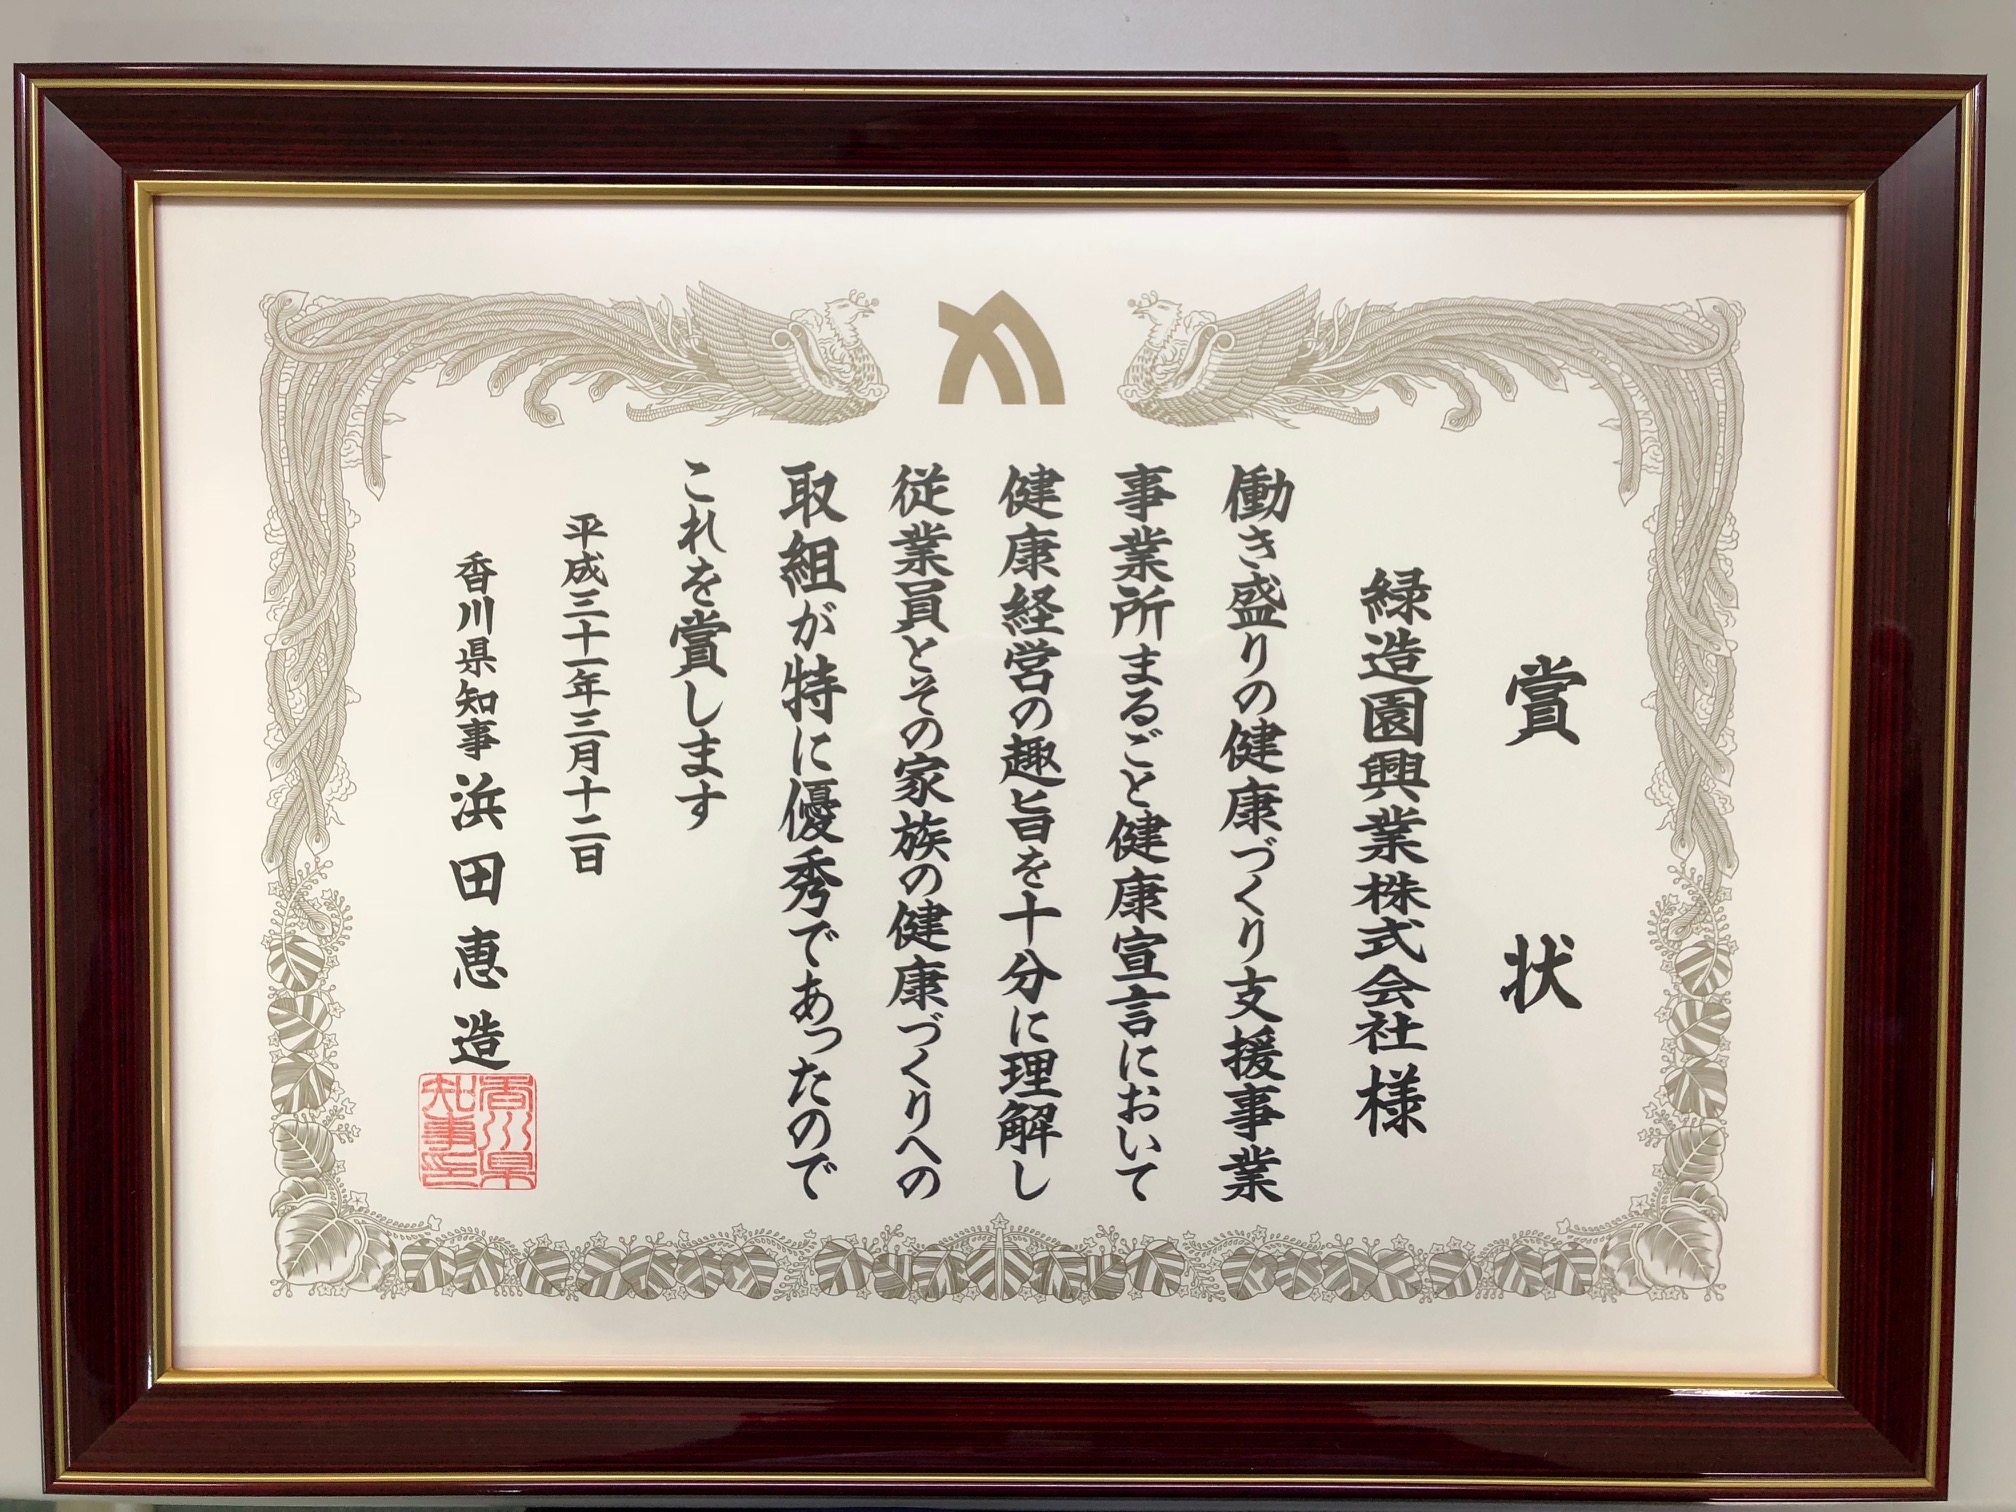 賞状
緑造園興業株式会社様
働き盛りの健康づくり支援事業
事業所まるごと健康宣言において
健康経営の趣旨を十分に理解し
従業員とその家族の健康づくりへの
取組が特に優秀であったので
これを賞します
平成三十一年三月十二日
香川県知事 浜田恵造
香川県
知事印